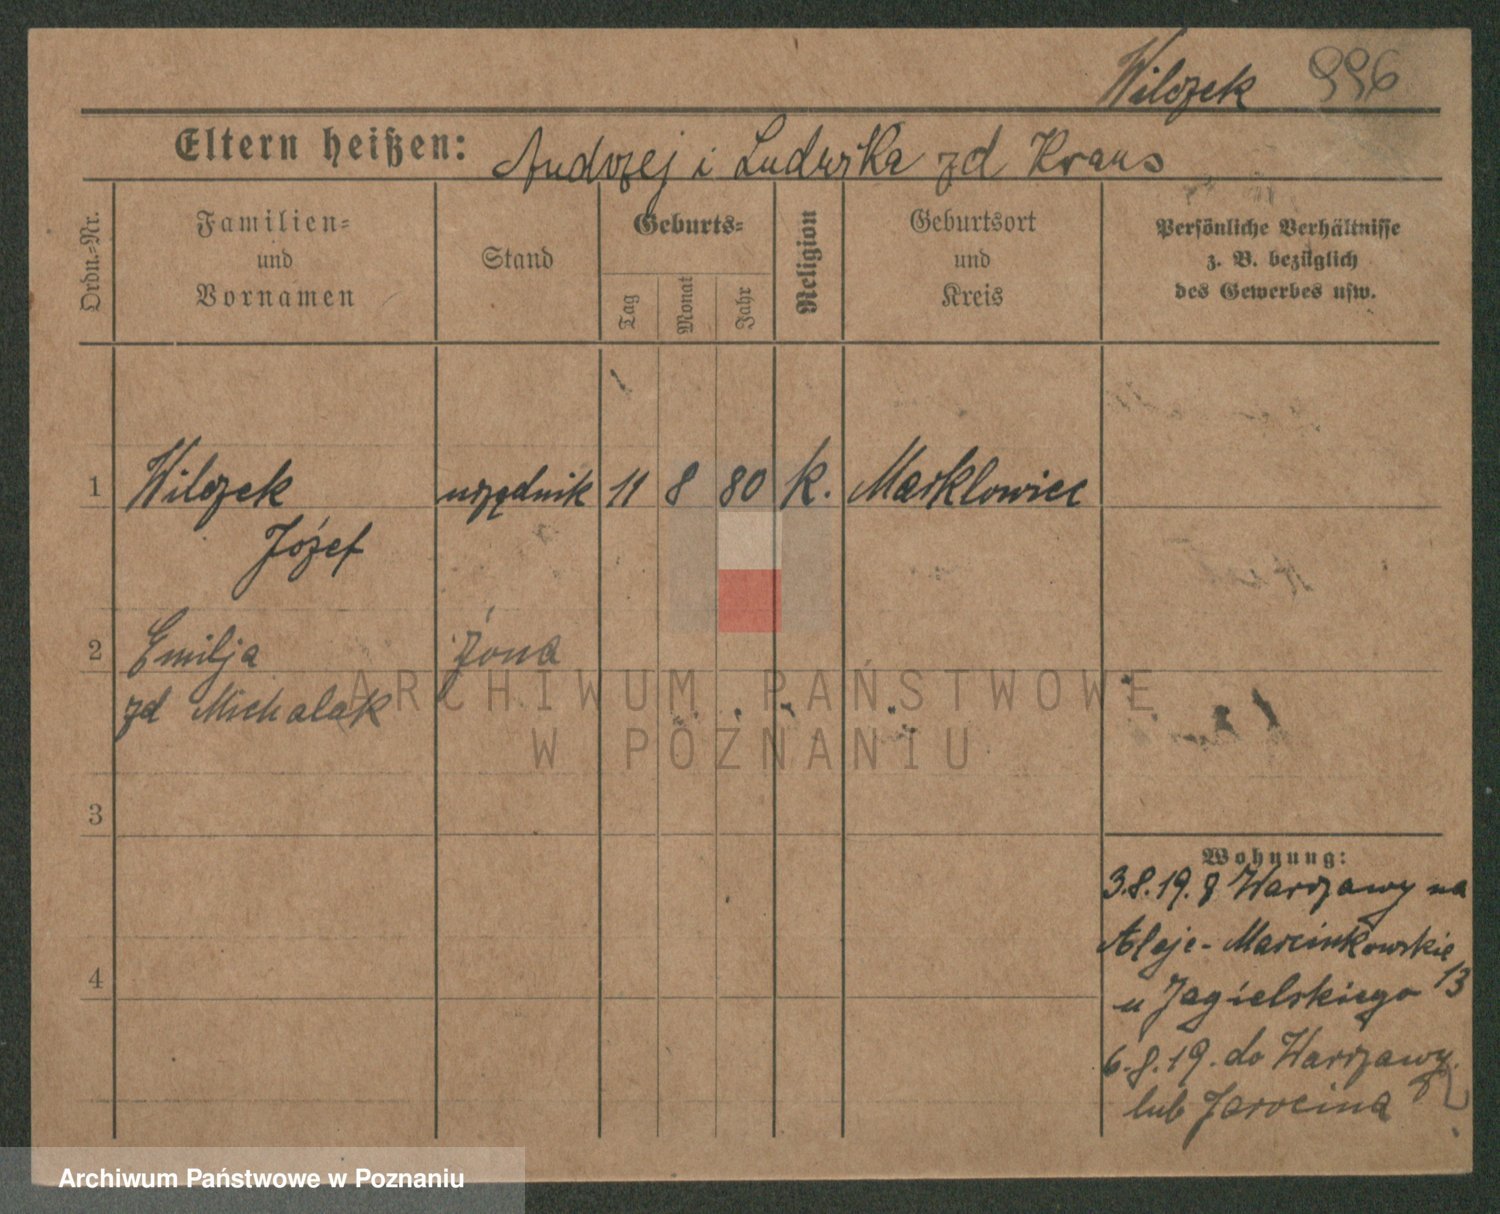 Wilczek 996
Eltern heißen: Andrzej i Ludwika zd Kraus
Ordn.-Nr.
Familien-
und
Vornamen
Stand
Geburts-
Tag
Monat
Jahr
Religion
Geburtsort
und
Kreis
Persönliche Verhältnisse
z. B. bezüglich
des Gewerbes usw.
1 Wilczek urzędnik 11 8 80 k. Marklowiec
Józef
2 Emilja żona
zd Michalak
3
4
Wohnung:
3.8.19. z Warszawy na
Aleje-Marcinkowskie
u Jagielskiego 13
6.8.19. do Warszawy
lub Jarocina
ARCHIWUM PAŃSTWOWE
W POZNANIU
Archiwum Państwowe w Poznaniu